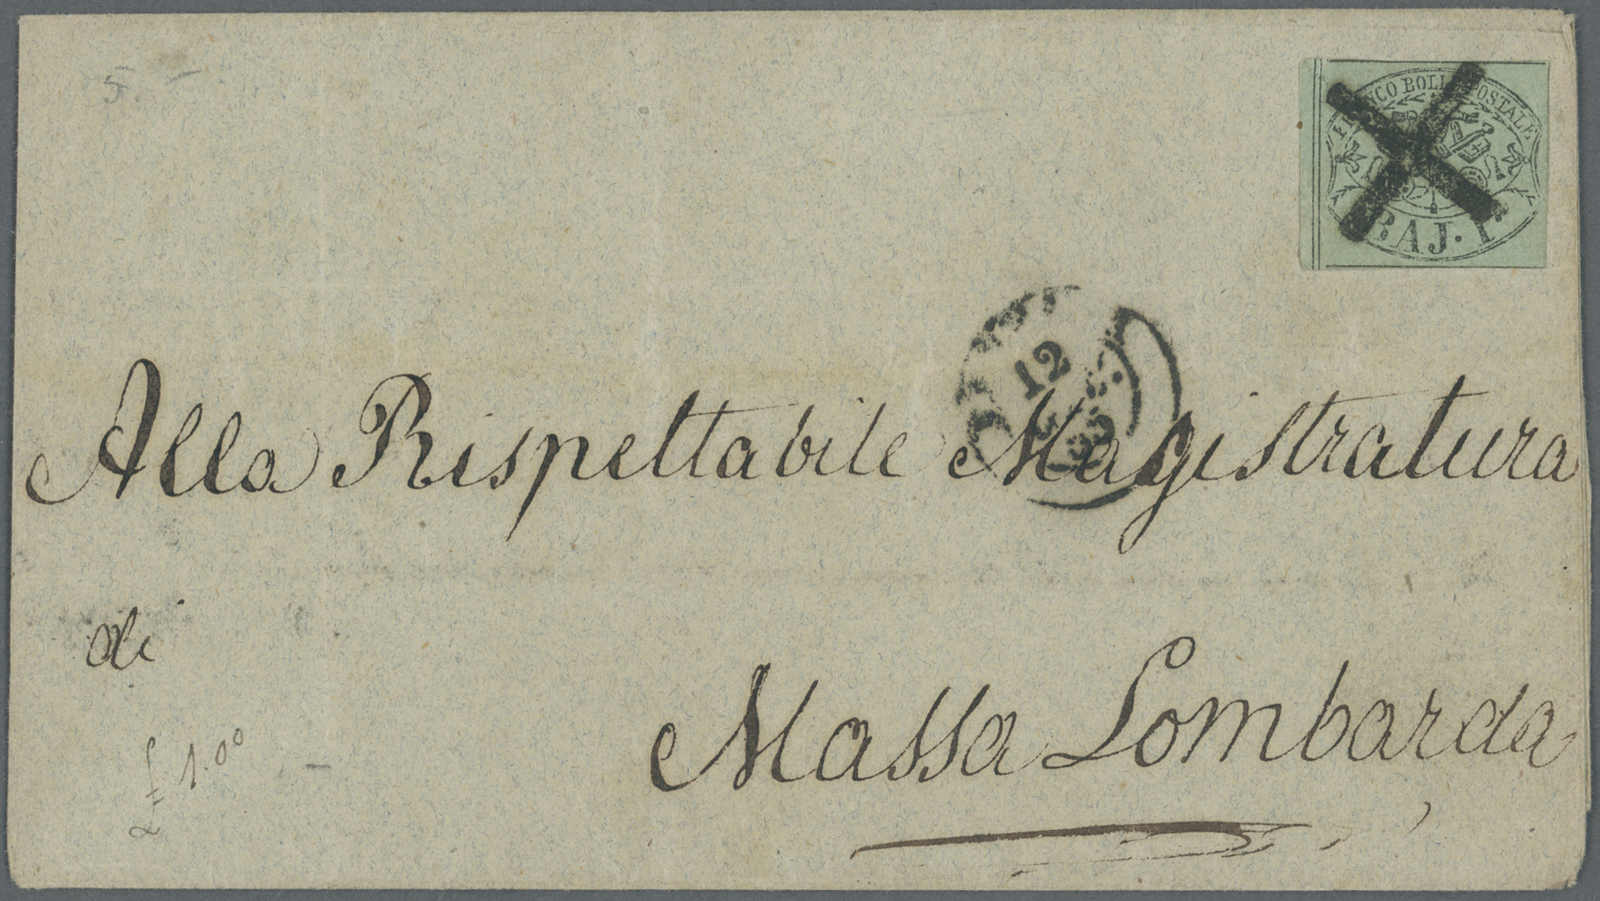 5.-
FRANCO BOLLO POSTALE
BAJ. 1
12
55
Alla Rispettabile Magistratura
di
Massa Lombarda
£ 1.00